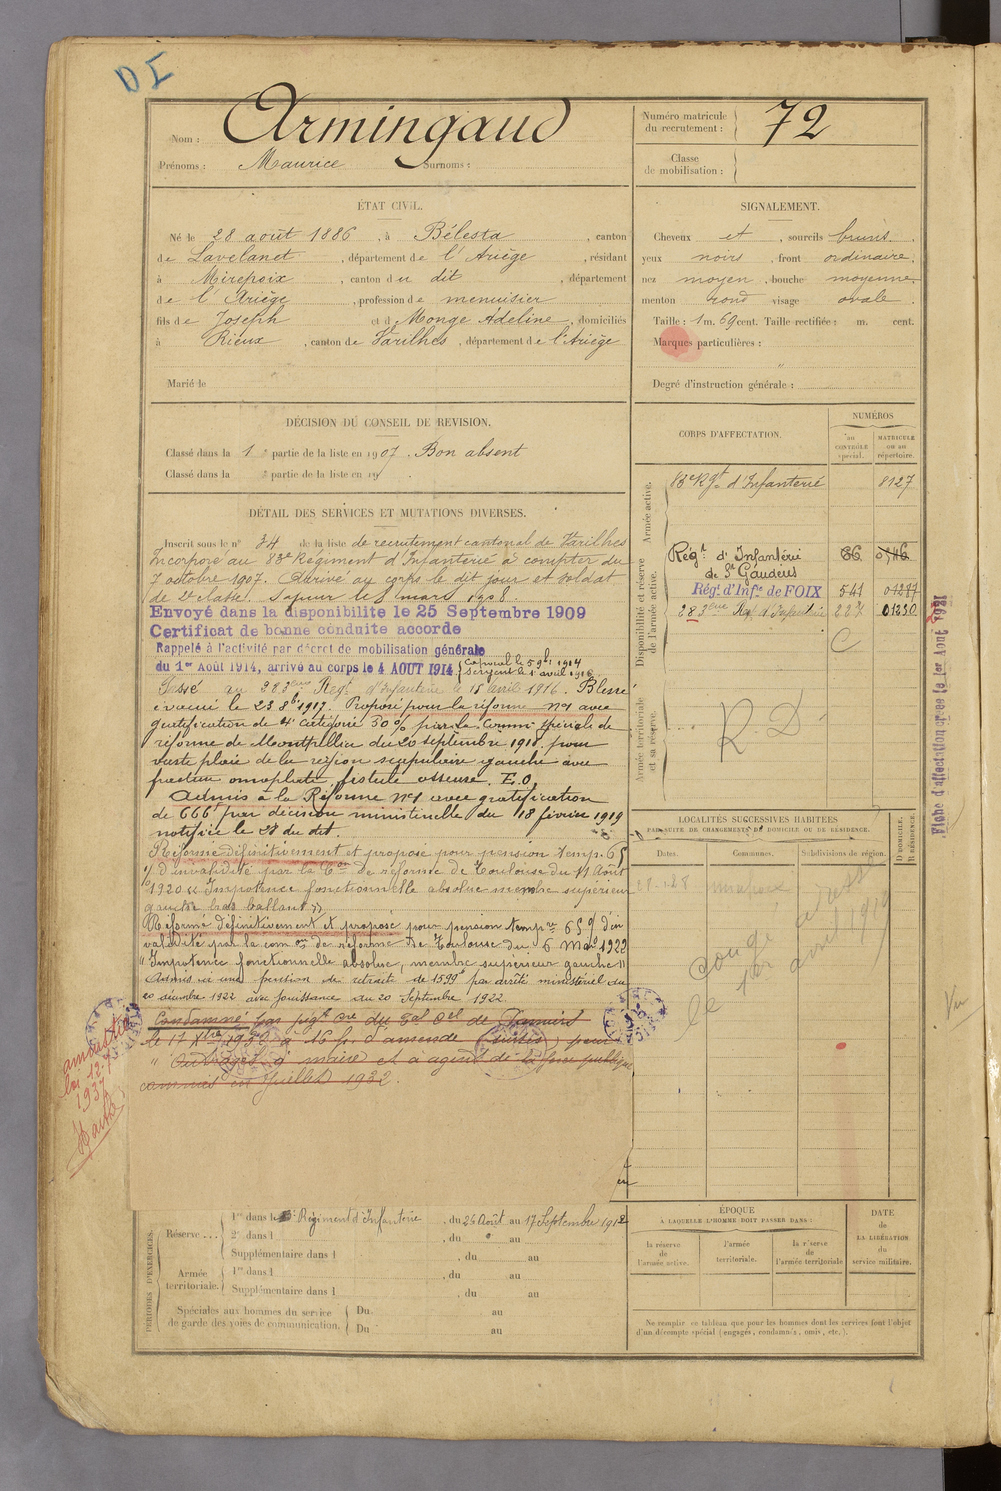 DI
Nom : Armingaud
Prénoms : Maurice Surnoms :
Numéro matricule
du recrutement : 72
Classe
de mobilisation :
ÉTAT CIVIL.
Né le 28 août 1886, à Bélesta, canton
de Lavelanet, département de l'Ariège, résidant
à Mirepoix, canton du dit, département
de l'Ariège, profession de menuisier
fils de Joseph et d Monge Adeline, domiciliés
à Rieux, canton de Varilhes, département de l'Ariège
Marié le
SIGNALEMENT.
Cheveux et, sourcils bruns.
yeux noirs, front ordinaire,
nez moyen, bouche moyenne,
menton rond visage ovale.
Taille : 1 m. 69 cent. Taille rectifiée : m. cent.
Marques particulières :
"
Degré d'instruction générale :
DÉCISION DU CONSEIL DE REVISION.
Classé dans la 1 e partie de la liste en 1907. Bon absent
Classé dans la e partie de la liste en 19
DÉTAIL DES SERVICES ET MUTATIONS DIVERSES.
Inscrit sous le n° 34 de la liste de recrutement cantonal de Varilhes
Incorporé au 83e Régiment d'Infanterie à compter du
7 octobre 1907. Arrivé au corps le dit jour et soldat
de 2e classe. Sapeur le 8 mars 1908.
Envoyé dans la disponibilite le 25 Septembre 1909
Certificat de bonne conduite accorde
Rappelé à l'activité par décret de mobilisation générale
du 1er Août 1914, arrivé au corps le 4 AOUT 1914
Caporal le 5 9bre 1914
Sergent le 1er avril 1916
Passé au 283eme Regt d'infanterie le 15 avril 1916. Blessé
évacué le 23 8bre 1917. Proposé pour la réforme n°1 avec
gratification de 4e catégorie 30% par la Common spéciale de
réforme de Montpellier du 20 septembre 1918 pour
vaste plaie de la région scapulaire gauche avec
fracture omoplate, fistule osseuse. E.O.
Admis à la Réforme n°1 avec gratification
de 666f par décision ministérielle du 18 février 1919
notifiée le 28 du dit.
Réformé définitivement et proposé pour pension temp. 65
% d'invalidité par la Con de réforme de Toulouse du 11 Août
1920 "Impotence fonctionnelle absolue membre supérieur
gauche bras ballant"
Réformé définitivement et proposé pour pension tempre 65% d'in
validité par la com.on de réforme de Toulouse du 6 Mars 1922
"Impotence fonctionnelle absolue, membre supérieur gauche"
Admis à une pension de retraite de 1599f par arrêté ministériel du
20 décembre 1922 avec jouissance du 20 Septembre 1922.
Condamné par jugt du de Pamiers
le 17 Xbre 1932 à 16 f. d'amende pour
"Outrages à maire et à agent de la force publique
commis en Juillet 1932.
amnistié
loi 12-7
1937
CORPS D'AFFECTATION.
NUMÉROS
au
CONTRÔLE
spécial.
MATRICULE
ou au
répertoire.
Armée active.
83e Rgt d'Infanterie 8127
Disponibilité et réserve
de l'armée active.
Régt d'Infanterie
de St Gaudens
Régt d'Infie de FOIX 541 01277
283eme Rgt d'Infanterie 227 01230
C
Armée territoriale
et sa réserve.
R. D
LOCALITÉS SUCCESSIVES HABITÉES
PAR SUITE DE CHANGEMENTS DE DOMICILE OU DE RÉSIDENCE.
D DOMICILE.
R RÉSIDENCE.
Dates. Communes. Subdivisions de région.
mirepoix
congé
le 1er avril 1919
Vu
Fiche d'affectation créée le 1er Août 1921
PÉRIODES D'EXERCICES.
Réserve
1re dans le Régiment d'Infanterie, du 26 Août au 17 Septembre 1912
2e dans l, du " au
Supplémentaire dans l, du au
Armée
territoriale.
1re dans l, du au
Supplémentaire dans l, du au
Spéciales aux hommes du service
de garde des voies de communication.
Du au
Du au
ÉPOQUE
À LAQUELLE L'HOMME DOIT PASSER DANS :
la réserve
de
l'armée active.
l'armée
territoriale.
la réserve
de
l'armée territoriale
DATE
de
LA LIBÉRATION
du
service militaire.
Ne remplir ce tableau que pour les hommes dont les services font l'objet
d'un décompte spécial (engagés, condamnés, omis, etc.).